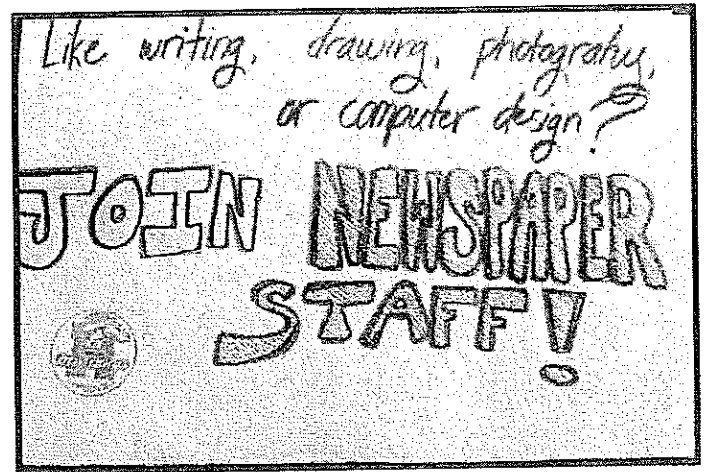 Like writing, drawing, photograhy,
or computer design?
JOIN NEWSPAPER
STAFF!